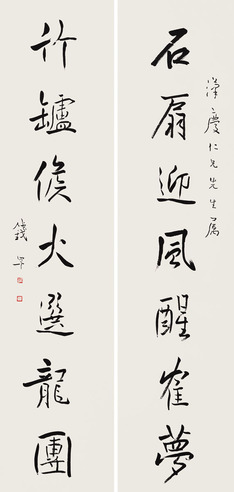 石扇迎風醒雀夢
澤慶仁兄先生属
竹鑪候火選龍團
錢